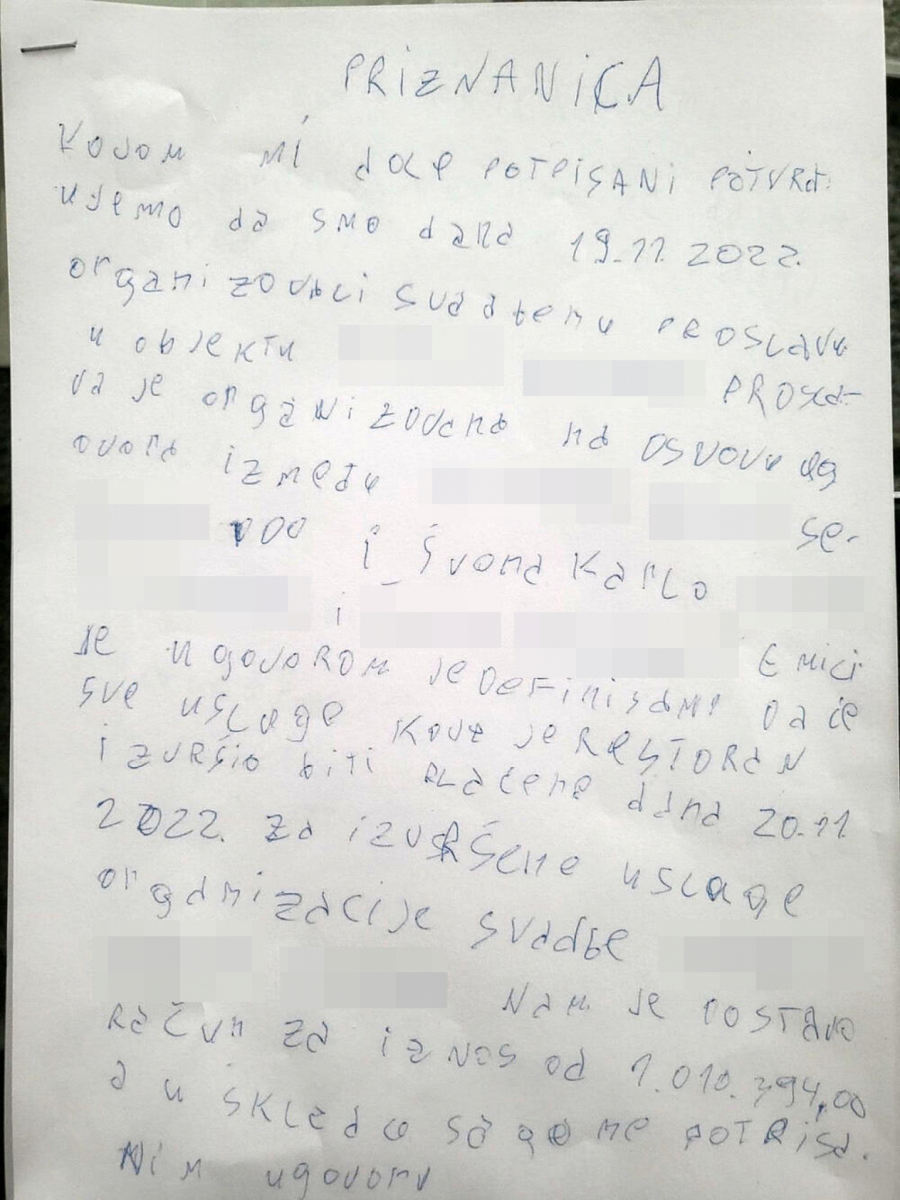 PRIZNANICA
KOJOM MI DOLE POTPISANI POTVRđ-
UJEMO da SMO dana 19.11.2022.
organizovali svadbenu PROSLAVU
u objektu
PROSLA-
va je organizovana na OSNOVU ug
ovora između
DOO SE-
i Ivona Karlo
i
je UgovoROM je DeFinisano Da će
sve usluge Koje je RESTORAN
izvršio biti plaćene dana 20.11
2022. za izvRšene usluge
organizacije svadbe
Nam je DOSTAVIO
Račun za iznos od 1.010.394,00
a u SKLADU sa gore POTPISA-
NiM ugovoru